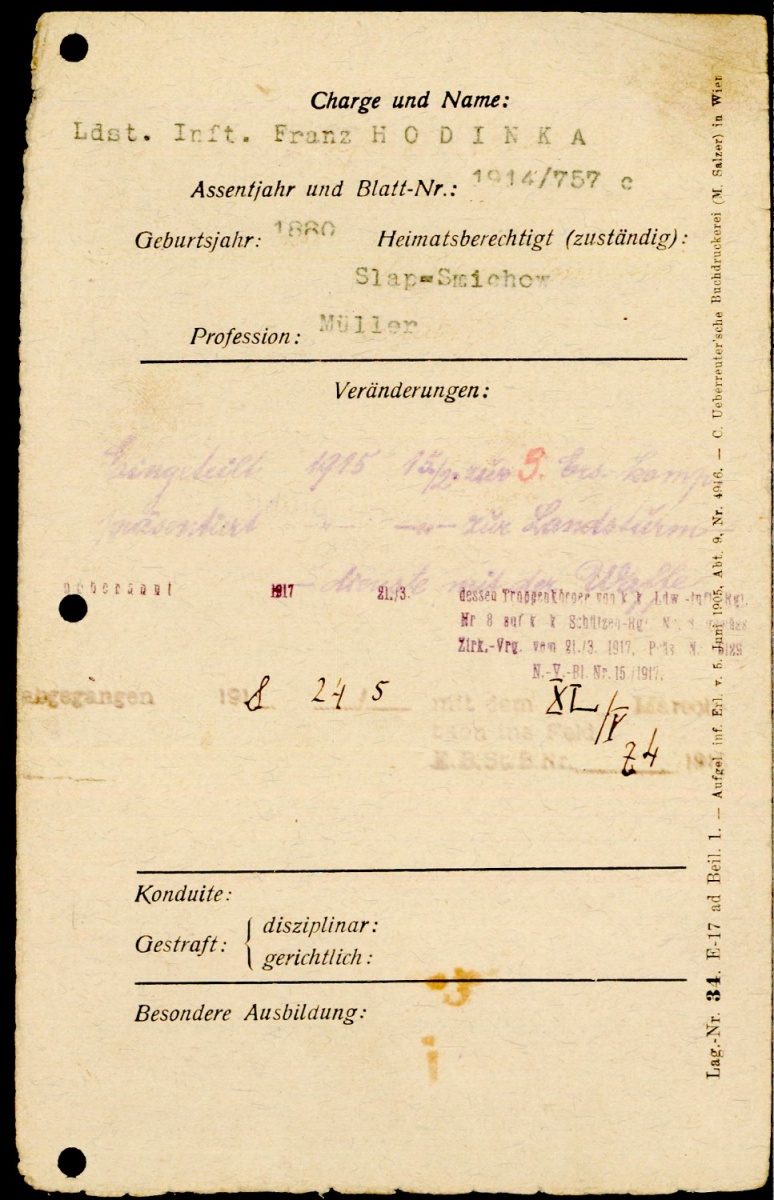 Charge und Name:
Ldst. Inft. Franz H O D I N K A
Assentjahr und Blatt-Nr.: 1914/757 c
Geburtsjahr: 1880 Heimatsberechtigt (zuständig):
Slap-Smichow
Profession: Müller
Veränderungen:
Eingeteilt 1915 15/2. zur 3. Ers. komp
präsentiert -"- -"- zur Landsturm-
dienste mit der Waffe
1917 21./3. dessen Truppenkörper von k. k. Ldw.-Inft.-Rgt.
Nr. 8 auf k. k. Schützen-Rgt. Nr. 8
Zirk.-Vrg. vom 21./3. 1917, Präs. N. 5129
N.-V.-Bl. Nr. 15/1917.
abgegangen 191 8 24 5 mit dem XL/V Marsch
ins Feld
E.B.St.B.Nr. 74 191
Konduite:
Gestraft: { disziplinar:
gerichtlich:
Besondere Ausbildung:
Lag.-Nr. 34. E-17 ad Beil. 1. — Aufgel. inf. Erl. v. 5. Juni 1905, Abt. 9, Nr. 4946. — C. Ueberreuter'sche Buchdruckerei (M. Salzer) in Wien